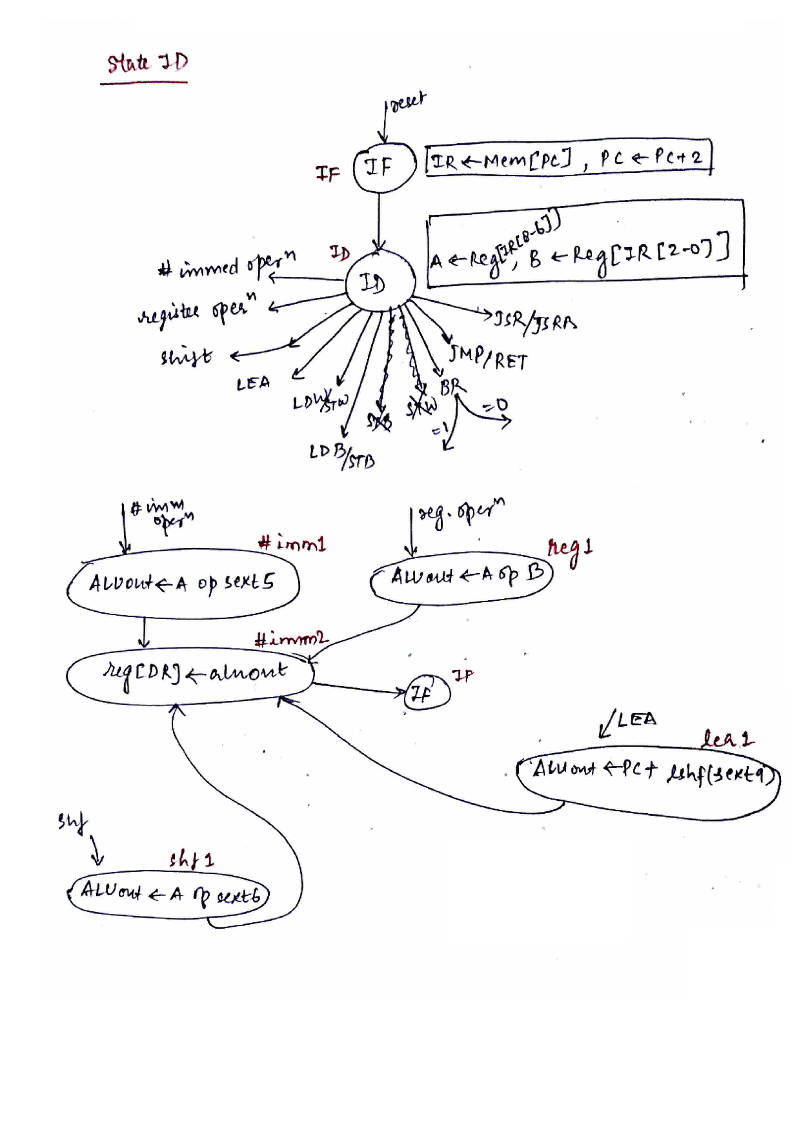 State ID
reset
IF
IF
IR ← Mem[PC] , PC ← PC+2
ID
ID
A ← Reg[IR[8-6]] , B ← Reg[IR[2-0]]
# immed oper^n
register oper^n
shift
LEA
LDW/STW
LDB/STB
BR
=0
=1
JMP/RET
JSR/JSRR
# imm oper^n
#imm1
ALUout ← A op sext5
reg. oper^n
reg1
ALUout ← A op B
#imm2
reg[DR] ← aluout
IF
IF
LEA
lea1
ALUout ← PC + lshf(sext9)
shf
shf1
ALUout ← A op sext6